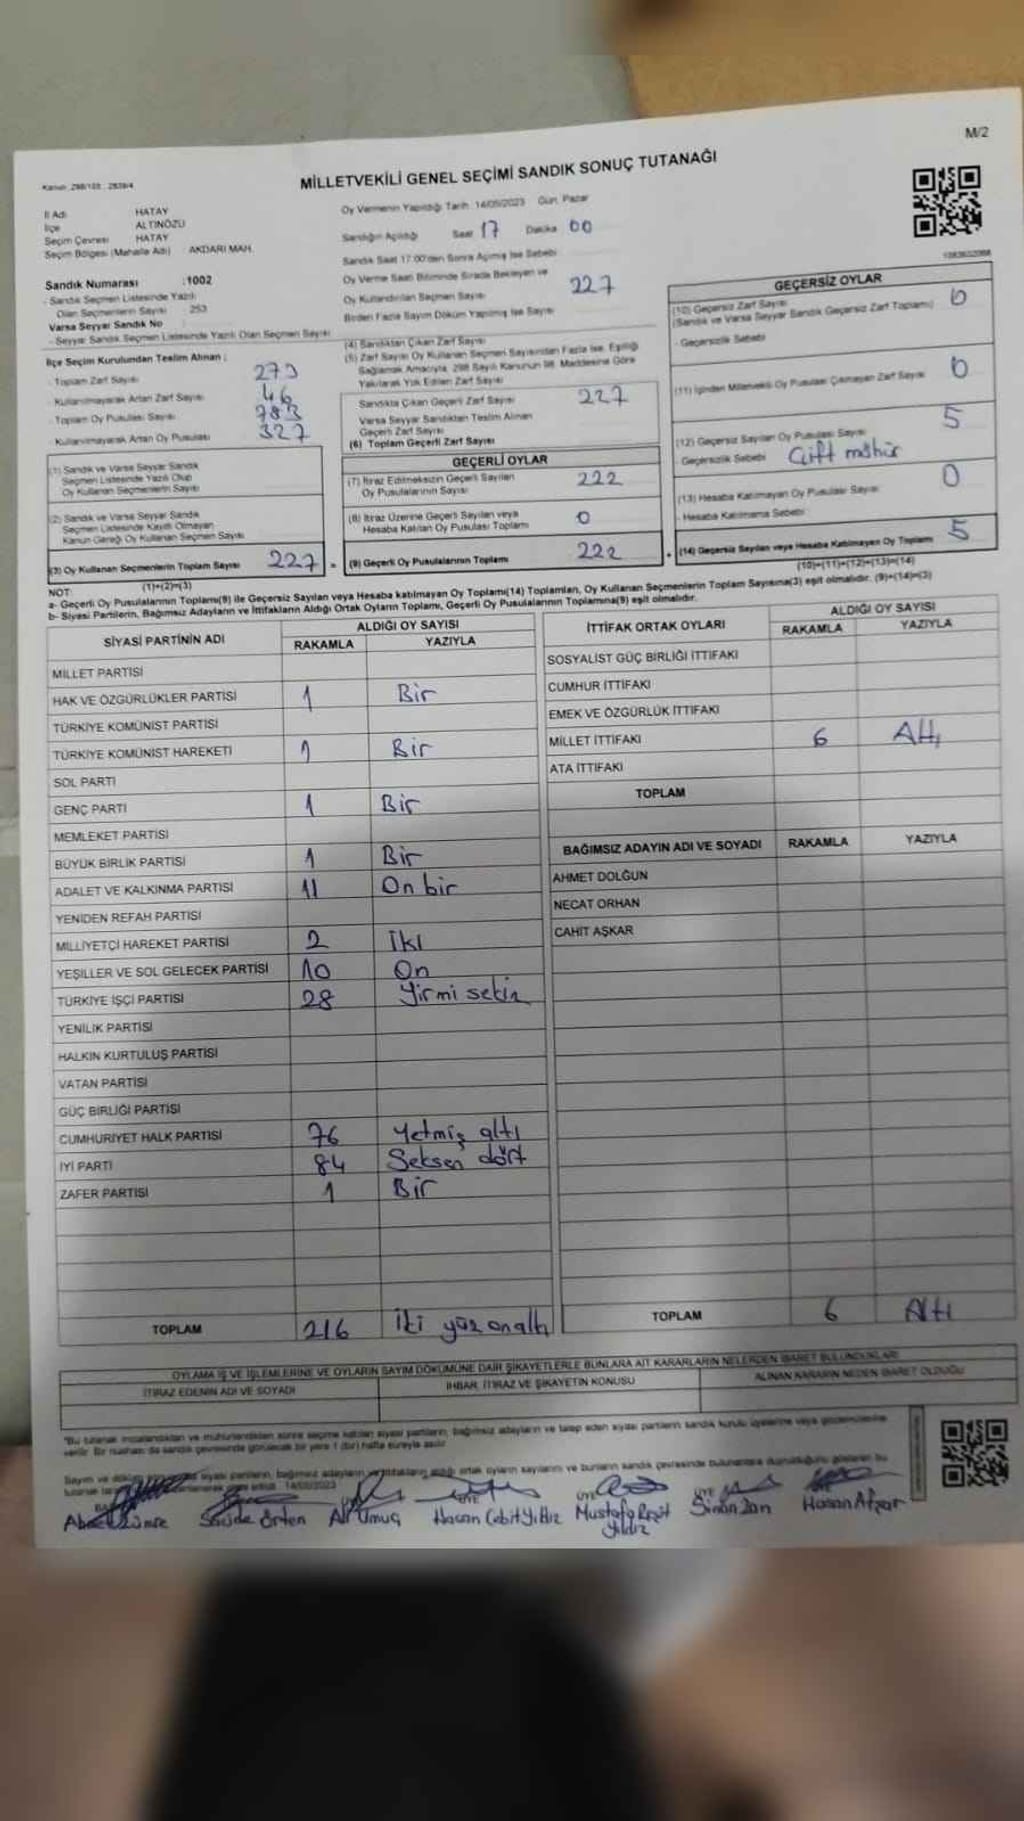 M/2
Kanun: 298/105 , 2839/4
MİLLETVEKİLİ GENEL SEÇİMİ SANDIK SONUÇ TUTANAĞI
İl Adı HATAY
İlçe ALTINÖZÜ
Seçim Çevresi HATAY
Seçim Bölgesi (Mahalle Adı) AKDARI MAH.
Sandık Numarası :1002
- Sandık Seçmen Listesinde Yazılı
Olan Seçmenlerin Sayısı : 253
Varsa Seyyar Sandık No
- Seyyar Sandık Seçmen Listesinde Yazılı Olan Seçmen Sayısı
İlçe Seçim Kurulundan Teslim Alınan :
- Toplam Zarf Sayısı
- Kullanılmayarak Artan Zarf Sayısı 46
- Toplam Oy Pusulası Sayısı 783
- Kullanılmayarak Artan Oy Pusulası 327
(1) Sandık ve Varsa Seyyar Sandık
Seçmen Listesinde Yazılı Olup
Oy Kullanan Seçmenlerin Sayısı
(2) Sandık ve Varsa Seyyar Sandık
Seçmen Listesinde Kayıtlı Olmayan
Kanun Gereği Oy Kullanan Seçmen Sayısı
(3) Oy Kullanan Seçmenlerin Toplam Sayısı 227 =
(1)+(2)=(3)
Oy Vermenin Yapıldığı Tarih: 14/05/2023 Gün: Pazar
Sandığın Açıldığı Saat 17 Dakika 00
Sandık Saat 17:00'den Sonra Açılmış İse Sebebi
Oy Verme Saati Bitiminde Sırada Bekleyen ve
Oy Kullandırılan Seçmen Sayısı
Birden Fazla Sayım Döküm Yapılmış İse Sayısı
227
(4) Sandıktan Çıkan Zarf Sayısı
(5) Zarf Sayısı Oy Kullanan Seçmen Sayısından Fazla İse, Eşitliği
Sağlamak Amacıyla, 298 Sayılı Kanunun 98. Maddesine Göre
Yakılarak Yok Edilen Zarf Sayısı
Sandıkta Çıkan Geçerli Zarf Sayısı 227
Varsa Seyyar Sandıktan Teslim Alınan
Geçerli Zarf Sayısı
(6) Toplam Geçerli Zarf Sayısı
GEÇERLİ OYLAR
(7) İtiraz Edilmeksizin Geçerli Sayılan
Oy Pusulalarının Sayısı 222
(8) İtiraz Üzerine Geçerli Sayılan veya
Hesaba Katılan Oy Pusulası Toplamı 0
(9) Geçerli Oy Pusulalarının Toplamı 222
GEÇERSİZ OYLAR
(10) Geçersiz Zarf Sayısı 0
(Sandık ve Varsa Seyyar Sandık Geçersiz Zarf Toplamı)
- Geçersizlik Sebebi
(11) İçinden Milletvekili Oy Pusulası Çıkmayan Zarf Sayısı 0
(12) Geçersiz Sayılan Oy Pusulası Sayısı 5
- Geçersizlik Sebebi Çift mühür
(13) Hesaba Katılmayan Oy Pusulası Sayısı 0
- Hesaba Katılmama Sebebi
(14) Geçersiz Sayılan veya Hesaba Katılmayan Oy Toplamı 5
(10)+(11)+(12)+(13)=(14)
NOT:
a- Geçerli Oy Pusulalarının Toplamı(9) ile Geçersiz Sayılan veya Hesaba katılmayan Oy Toplamı(14) Toplamları, Oy Kullanan Seçmenlerin Toplam Sayısına(3) eşit olmalıdır. (9)+(14)=(3)
b- Siyasi Partilerin, Bağımsız Adayların ve İttifakların Aldığı Ortak Oyların Toplamı, Geçerli Oy Pusulalarının Toplamına(9) eşit olmalıdır.
SİYASİ PARTİNİN ADI ALDIĞI OY SAYISI
RAKAMLA YAZIYLA
MİLLET PARTİSİ
HAK VE ÖZGÜRLÜKLER PARTİSİ 1 Bir
TÜRKİYE KOMÜNİST PARTİSİ
TÜRKİYE KOMÜNİST HAREKETİ 1 Bir
SOL PARTİ
GENÇ PARTİ 1 Bir
MEMLEKET PARTİSİ
BÜYÜK BİRLİK PARTİSİ 1 Bir
ADALET VE KALKINMA PARTİSİ 11 On bir
YENİDEN REFAH PARTİSİ
MİLLİYETÇİ HAREKET PARTİSİ 2 İki
YEŞİLLER VE SOL GELECEK PARTİSİ 10 On
TÜRKİYE İŞÇİ PARTİSİ 28 Yirmi sekiz
YENİLİK PARTİSİ
HALKIN KURTULUŞ PARTİSİ
VATAN PARTİSİ
GÜÇ BİRLİĞİ PARTİSİ
CUMHURİYET HALK PARTİSİ 76 Yetmiş altı
İYİ PARTİ 84 Seksen dört
ZAFER PARTİSİ 1 Bir
TOPLAM 216 İki yüz onaltı
İTTİFAK ORTAK OYLARI ALDIĞI OY SAYISI
RAKAMLA YAZIYLA
SOSYALİST GÜÇ BİRLİĞİ İTTİFAKI
CUMHUR İTTİFAKI
EMEK VE ÖZGÜRLÜK İTTİFAKI
MİLLET İTTİFAKI 6 Altı
ATA İTTİFAKI
TOPLAM
BAĞIMSIZ ADAYIN ADI VE SOYADI RAKAMLA YAZIYLA
AHMET DOLĞUN
NECAT ORHAN
CAHİT AŞKAR
TOPLAM 6 Altı
OYLAMA İŞ VE İŞLEMLERİNE VE OYLARIN SAYIM DÖKÜMÜNE DAİR ŞİKAYETLERLE BUNLARA AİT KARARLARIN NELERDEN İBARET BULUNDUKLARI
İTİRAZ EDENİN ADI VE SOYADI İHBAR, İTİRAZ VE ŞİKAYETİN KONUSU ALINAN KARARIN NEDEN İBARET OLDUĞU
"Bu tutanak imzalandıktan ve mühürlendikten sonra seçime katılan siyasi partilerin, bağımsız adayların ve talep eden siyasi partilerin sandık kurulu üyelerine veya gözlemcilerine
verilir. Bir nüshası da sandık çevresinde görülecek bir yere 1 (bir) hafta süreyle asılır.
14/05/2023
ÜYE ÜYE ÜYE
Ali Umuç Hasan Cabit Yıldız Mustafa Reşit Sinan Hasan
Yıldız